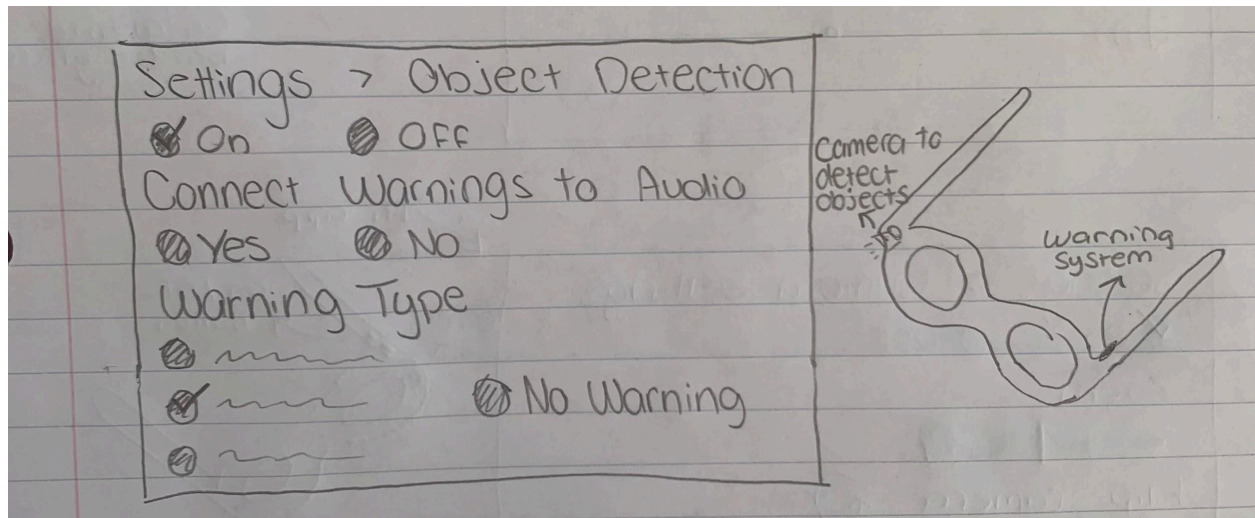 Settings > Object Detection
On Off
Connect Warnings to Audio
Yes No
Warning Type
No Warning
Camera to
detect
objects
Warning
System